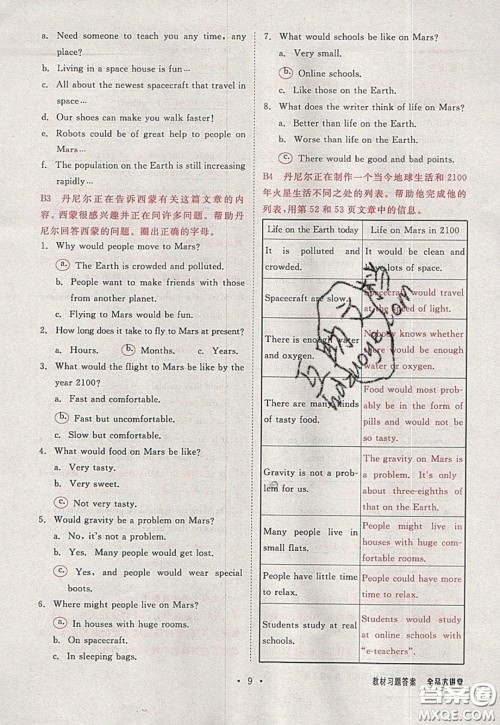 a. Need someone to teach you any time, any
place?
b. Living in a space house is fun…
c. All about the newest spacecraft that travel in
space…
d. Our shoes can make you walk faster!
e. Robots could be of great help to people on
Mars…
f. The population on the Earth is still increasing
rapidly…
B3 丹尼尔正在告诉西蒙有关这篇文章的内
容。西蒙很感兴趣并正在问许多问题。帮助丹
尼尔回答西蒙的问题。圈出正确的字母。
1. Why would people move to Mars?
a. The Earth is crowded and polluted.
b. People want to make friends with those
from another planet.
c. Flying to Mars would be fun.
2. How long does it take to fly to Mars at present?
a. Hours. b. Months. c. Years.
3. What would the flight to Mars be like by the
year 2100?
a. Fast and comfortable.
b. Fast but uncomfortable.
c. Slow but comfortable.
4. What would food on Mars be like?
a. Very tasty.
b. Very sweet.
c. Not very tasty.
5. Would gravity be a problem on Mars?
a. No, it's not a problem.
b. Yes. Many people would get lost.
c. Yes, and people would wear special
boots.
6. Where might people live on Mars?
a. In houses with huge rooms.
b. On spacecraft.
c. In sleeping bags.
7. What would schools be like on Mars?
a. Very small.
b. Online schools.
c. Like those on the Earth.
8. What does the writer think of life on Mars?
a. Better than life on the Earth in many ways.
b. Worse than life on the Earth.
c. The same as life on the Earth.
B4 丹尼尔正在制作一个当今地球生活和 2100
年火星生活不同之处的列表。帮助他完成他的
列表,用第 52 和 53 页文章中的信息。
Life on the Earth today Life on Mars in 2100
It is polluted and
crowded.
It would be clean and
have lots of space.
Spacecraft are slow.
Spacecraft would travel
at the speed of light.
There is enough water
and oxygen.
Nobody knows whether
there would be enough
water or oxygen.
There are many kinds
of tasty food.
Food would most
probably be in the
form of pills and
would not be tasty.
Gravity is not a prob-
lem for us.
The gravity on Mars is
a problem. It's only
about three-eighths of
that on the Earth.
Many people live in
small flats.
People might live in
houses with huge com-
fortable rooms.
People have little time
to relax.
People would have
more time to relax.
Students study at real
schools.
Students would study
at online schools with
"e-teachers".
· 9 ·
教材习题答案 全品大讲堂
互助文档
hukuhome.com
答案圈
MXQE.COM